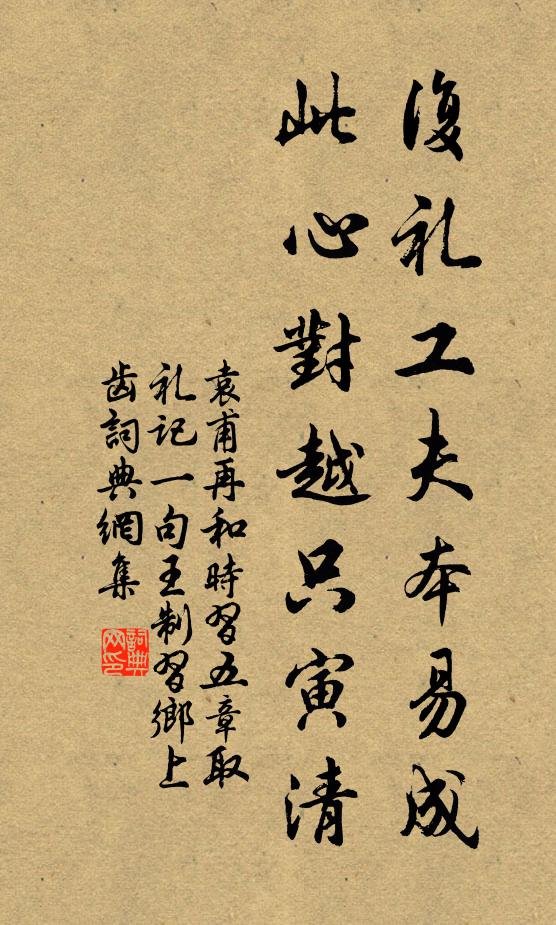 復礼工夫本易成
此心對越只寅清
袁甫再和時習五章取
礼记一句王制習鄉上
齿詞典網集
詞典网印